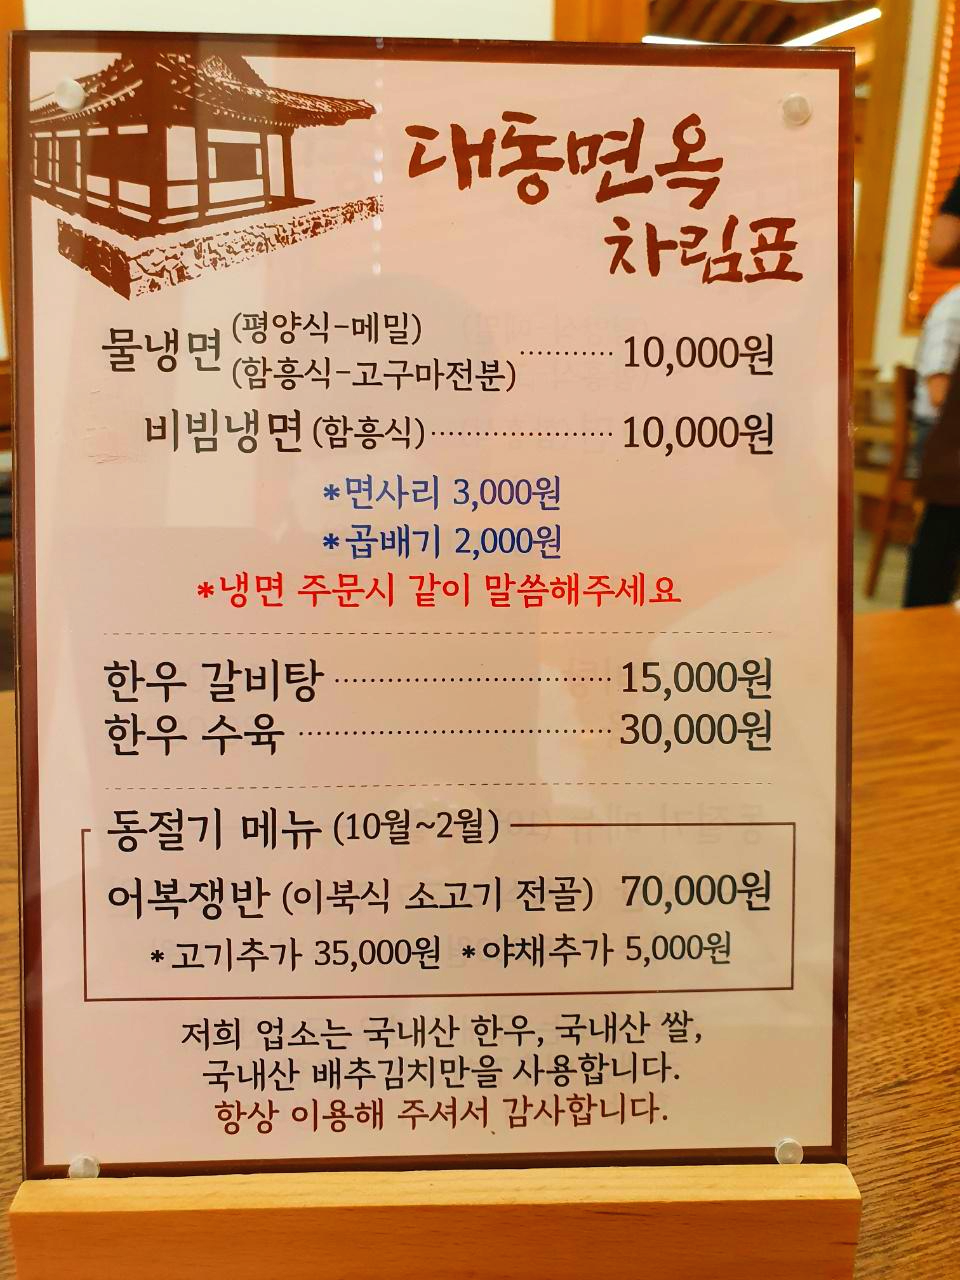 대동면옥
차림표
물냉면 (평양식-메밀)
(함흥식-고구마전분) ··········· 10,000원
비빔냉면 (함흥식) ····················· 10,000원
*면사리 3,000원
*곱배기 2,000원
*냉면 주문시 같이 말씀해주세요
한우 갈비탕 ································ 15,000원
한우 수육 ···································· 30,000원
동절기 메뉴 (10월~2월)
어복쟁반 (이북식 소고기 전골) 70,000원
*고기추가 35,000원 *야채추가 5,000원
저희 업소는 국내산 한우, 국내산 쌀,
국내산 배추김치만을 사용합니다.
항상 이용해 주셔서 감사합니다.